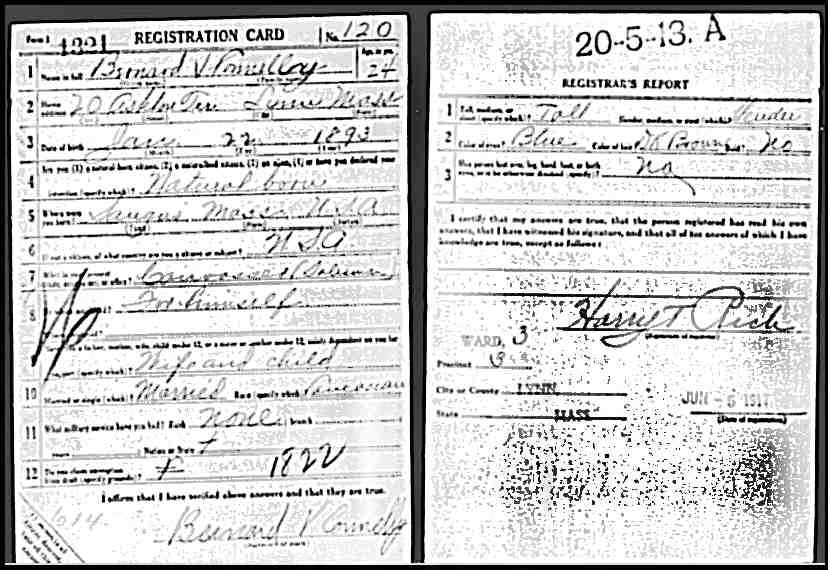 Form 1 1221 REGISTRATION CARD No. 120
1 Name in full Bernard V Connelly Age, in yrs. 24
2 Home address 20 Ashton Terr Lynn Mass
3 Date of birth Jan 22 1893
4 Are you (1) a natural born citizen, (2) a naturalized citizen, (3) an alien, (4) or have you declared your
intention (specify which)? Natural born
5 Where were you born? Saugus Mass U.S.A
6 If not a citizen, of what country are you a citizen or subject? U.S.A
7 What is your present trade, occupation, or office? (Salesman)
8 For himself
9 Have you a father, mother, wife, child under 12, or a sister or brother under 12, solely dependent on you for
support (specify which)? Wife and child
10 Married or single (which)? Married Race (specify which)? Caucasian
11 What military service have you had? Rank None branch
years Nation or State
12 Do you claim exemption from draft (specify grounds)? 1822
I affirm that I have verified above answers and that they are true.
614
Bernard V Connelly
20-5-13. A
REGISTRAR'S REPORT
1 Tall, medium, or short (specify which)? Tall Slender, medium, or stout (which)? Slender
2 Color of eyes? Blue Color of hair? Dk Brown Bald? No
3 Has person lost arm, leg, hand, foot, or both eyes, or is he otherwise disabled (specify)? No
I certify that my answers are true, that the person registered has read his own
answers, that I have witnessed his signature, and that all of his answers of which I have
knowledge are true, except as follows:
Harry T Rich
(Signature of registrar)
WARD, 3
Precinct 3
City or County LYNN
State MASS.
JUN - 5 1917
(Date of registration)